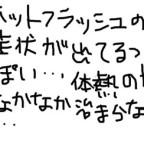 ホットフラッシュの
症状が出てるっ
ぽい…体熱の
なかなか治まらな
…